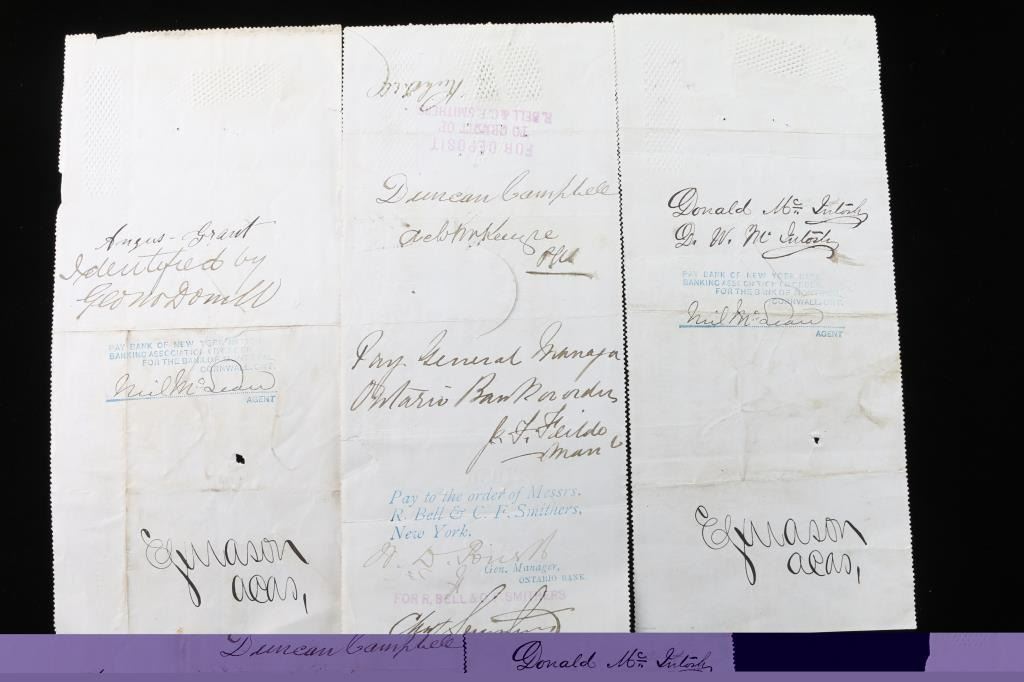 Angus Grant
Identified by
PAY BANK OF NEW YORK
BANKING ASSOCIATION
FOR THE BANK OF MONTREAL
CORNWALL, ONT.
Neil McLean
AGENT
EJMason
acas,
FOR DEPOSIT
TO CREDIT OF
R. BELL & C. F. SMITHERS
Duncan Campbell
Pay General Manager
Ontario Bank or order
Pay to the order of Messrs.
R. Bell & C. F. Smithers,
New York.
Gen. Manager,
ONTARIO BANK.
FOR R. BELL & C. F. SMITHERS
Donald Mc Intosh
D. W. Mc Intosh
PAY BANK OF NEW YORK
BANKING ASSOCIATION
FOR THE BANK OF MONTREAL
CORNWALL, ONT.
Neil McLean
AGENT
EJMason
acas,
Duncan Campbell
Donald Mc Intosh